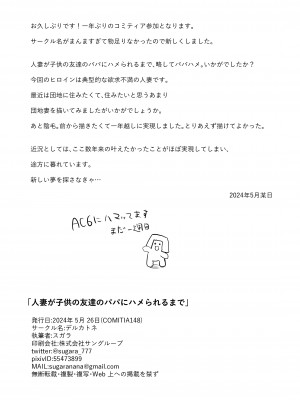 お久しぶりです！一年ぶりのコミティア参加となります。
サークル名がまんますぎて物足りなかったので新しくしました。
人妻が子供の友達のパパにハメられるまで、略してパパハメ。いかがでしたか？
今回のヒロインは典型的な欲求不満の人妻です。
最近は団地に住みたくて、住みたいと思うあまり
団地妻を描いてみましたがいかがでしょうか。
あと陰毛。前から描きたくて一年越しに実現しました。とりあえず描けてよかった。
近況としては、ここ数年来の叶えたかったことがほぼ実現してしまい、
途方に暮れています。
新しい夢を探さなきゃ…
2024年5月某日
AC6にハマってます
まだ一周目
「人妻が子供の友達のパパにハメられるまで」
発行日:2024年 5月 26日(COMITIA148)
サークル名:デルカトネ
執筆者:スガラ
印刷会社:株式会社サングループ
twitter:@sugara_777
pixivID:55473899
MAIL:sugaranana@gmail.com
無断転載・複製・複写・Web 上への掲載を禁ず